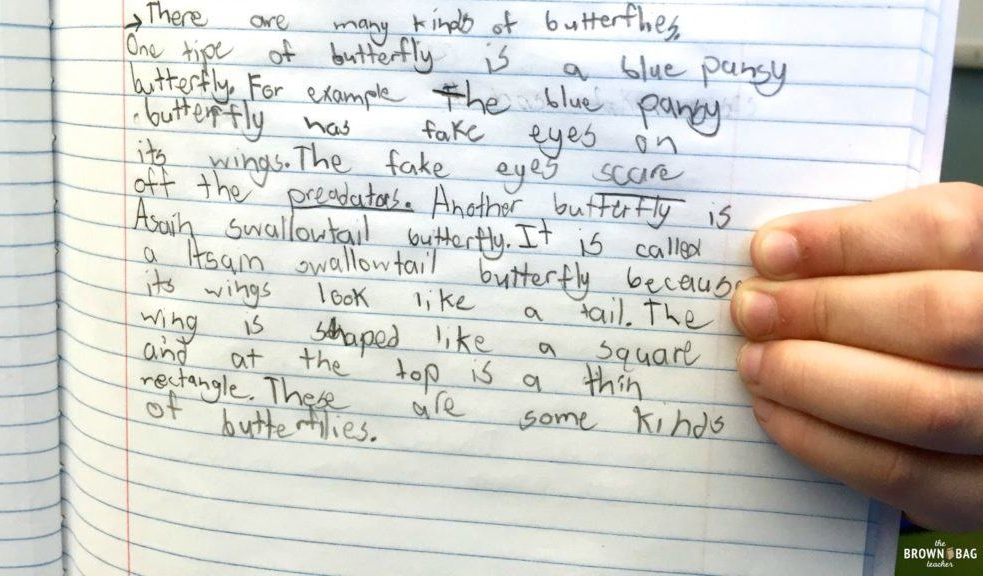 →There are many kinds of butterflies.
One tipe of butterfly is a blue pansy
butterfly. For example the blue pansy
butterfly has fake eyes on
its wings. The fake eyes scare
off the preadators. Another butterfly is
Asain swallowtail butterfly. It is called
a Asain swallowtail butterfly because
its wings look like a tail. The
wing is shaped like a square
and at the top is a thin
rectangle. These are some kinds
of butterflies.
the
BROWN BAG
teacher